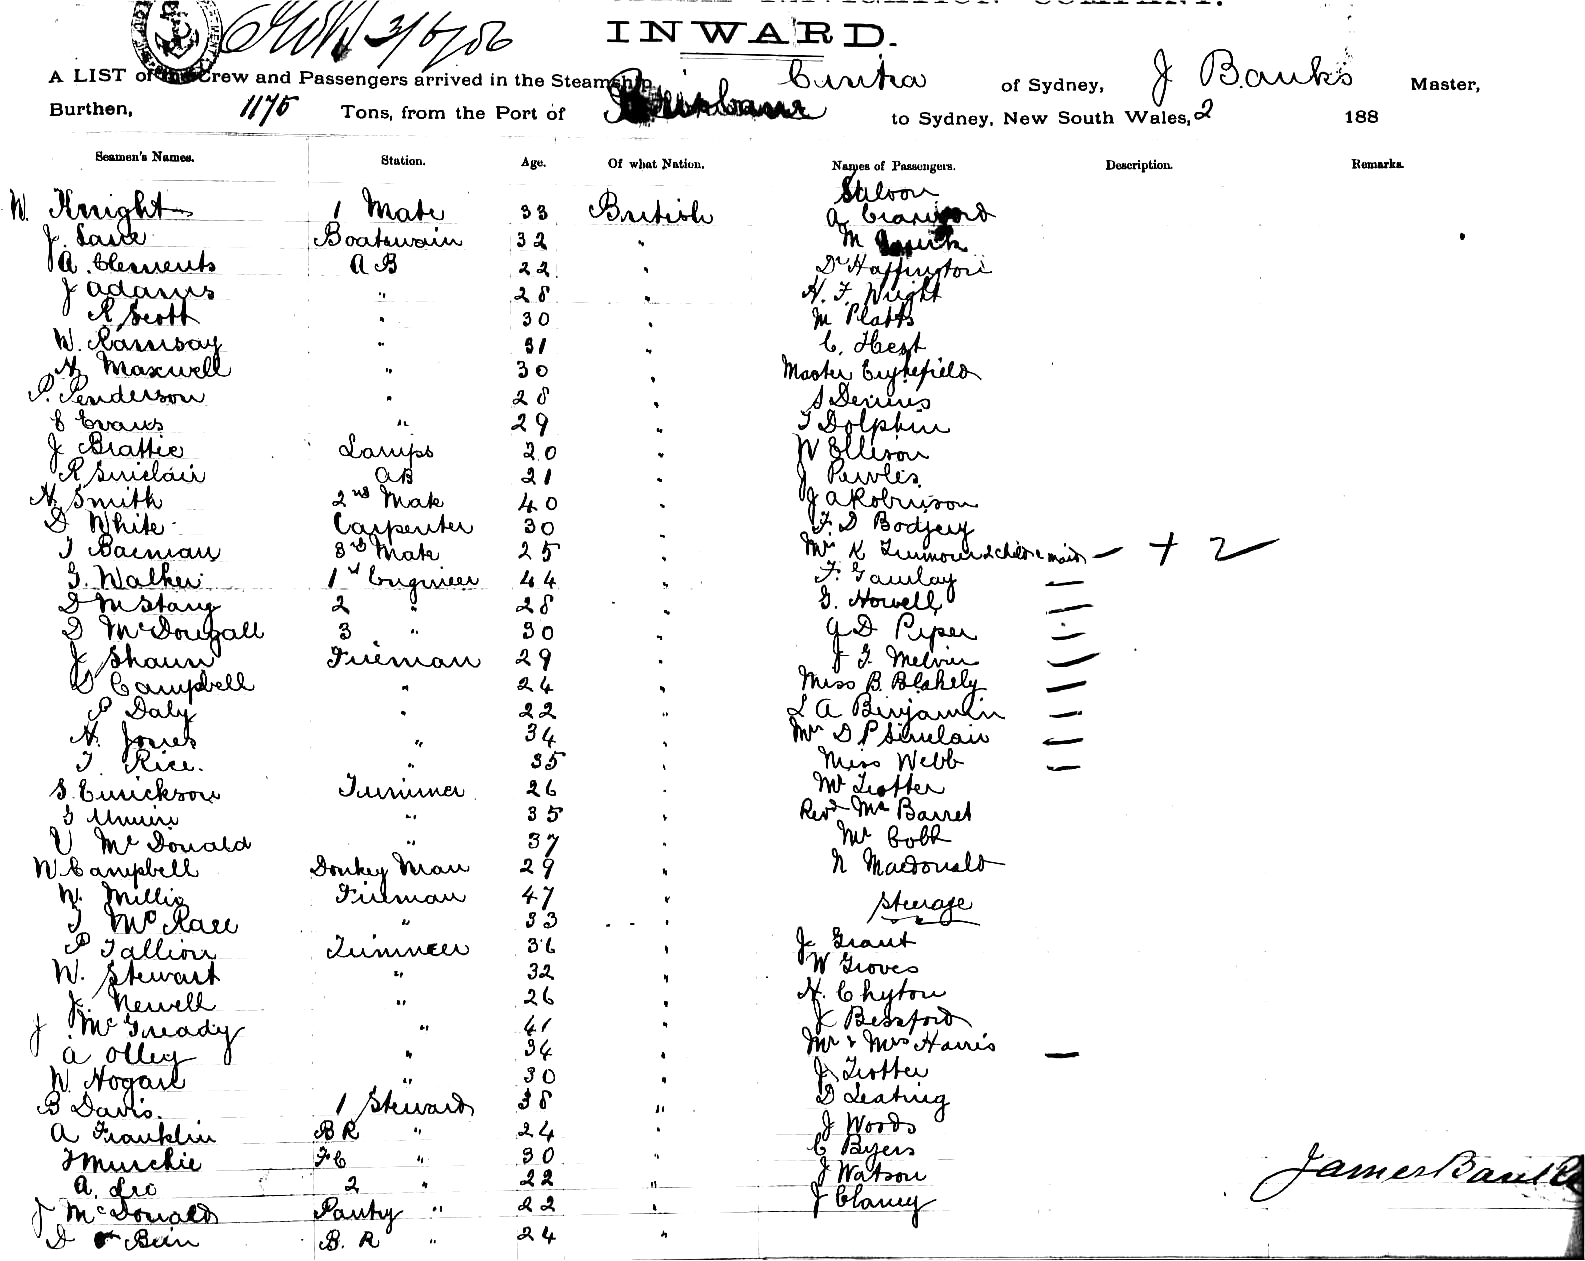 INWARD.
A LIST of the Crew and Passengers arrived in the Steamship Cintra of Sydney, J Banks Master,
Burthen, 1175 Tons, from the Port of Brisbane to Sydney, New South Wales, 2 188
Seamen's Names. Station. Age. Of what Nation. Names of Passengers. Description. Remarks.
Saloon
W. Knight 1 Mate 33 British A
J. Boatswain 32 " M
A. Clements A B 22 " Dr Haffington
J Adams " 28 " H. F. Wright
R Scott " 30 " M Platts
W. Ramsay " 31 " C.
H Maxwell " 30 " Master
P. Penderson " 28 " S Dennis
E Evans " 29 " T Dolphin
J Beattie Lamps 20 " W Ellison
R Sinclair AB 21 " J
H Smith 2nd Mate 40 " J A Robinson
D White Carpenter 30 " F D
T 3rd Mate 25 " Mrs K 2 child & maid — + 2
G. Walker 1st Engineer 44 " F. —
D 2 " 28 " G. Howell —
D McDougall 3 " 30 " A D Piper —
J Fireman 29 " J G Melvin —
D Campbell " 24 " Miss B. Blakely —
P Daly " 22 " L A Benjamin —
H. Jones " 34 " Mrs D P Sinclair —
T. Rice. " 35 " Miss Webb —
S. Trimmer 26 " Mr Trotter
G " 35 " Revd Mr Barret
McDonald " 37 " Mr Cobb
W Campbell Donkey Man 29 " N Macdonald
W. Fireman 47 " Steerage
T McRae " 33 "
P Tallion Trimmer 36 " J Grant
W. Stewart " 32 " W Groves
J. Newell " 26 " H. Chyton
J McGready " 41 " J Bessford
A Olley " 34 " Mr & Mrs Harris —
W. Hogan " 30 " J Trotter
B Davis. 1 Steward 38 " D Leating
A Franklin BR " 24 " J Woods
T Murchie FC " 30 " C Byers
A. 2 " 22 " J Watson
J McDonald Pantry " 22 " J Clancy
D B. R " 24 "
James Banks